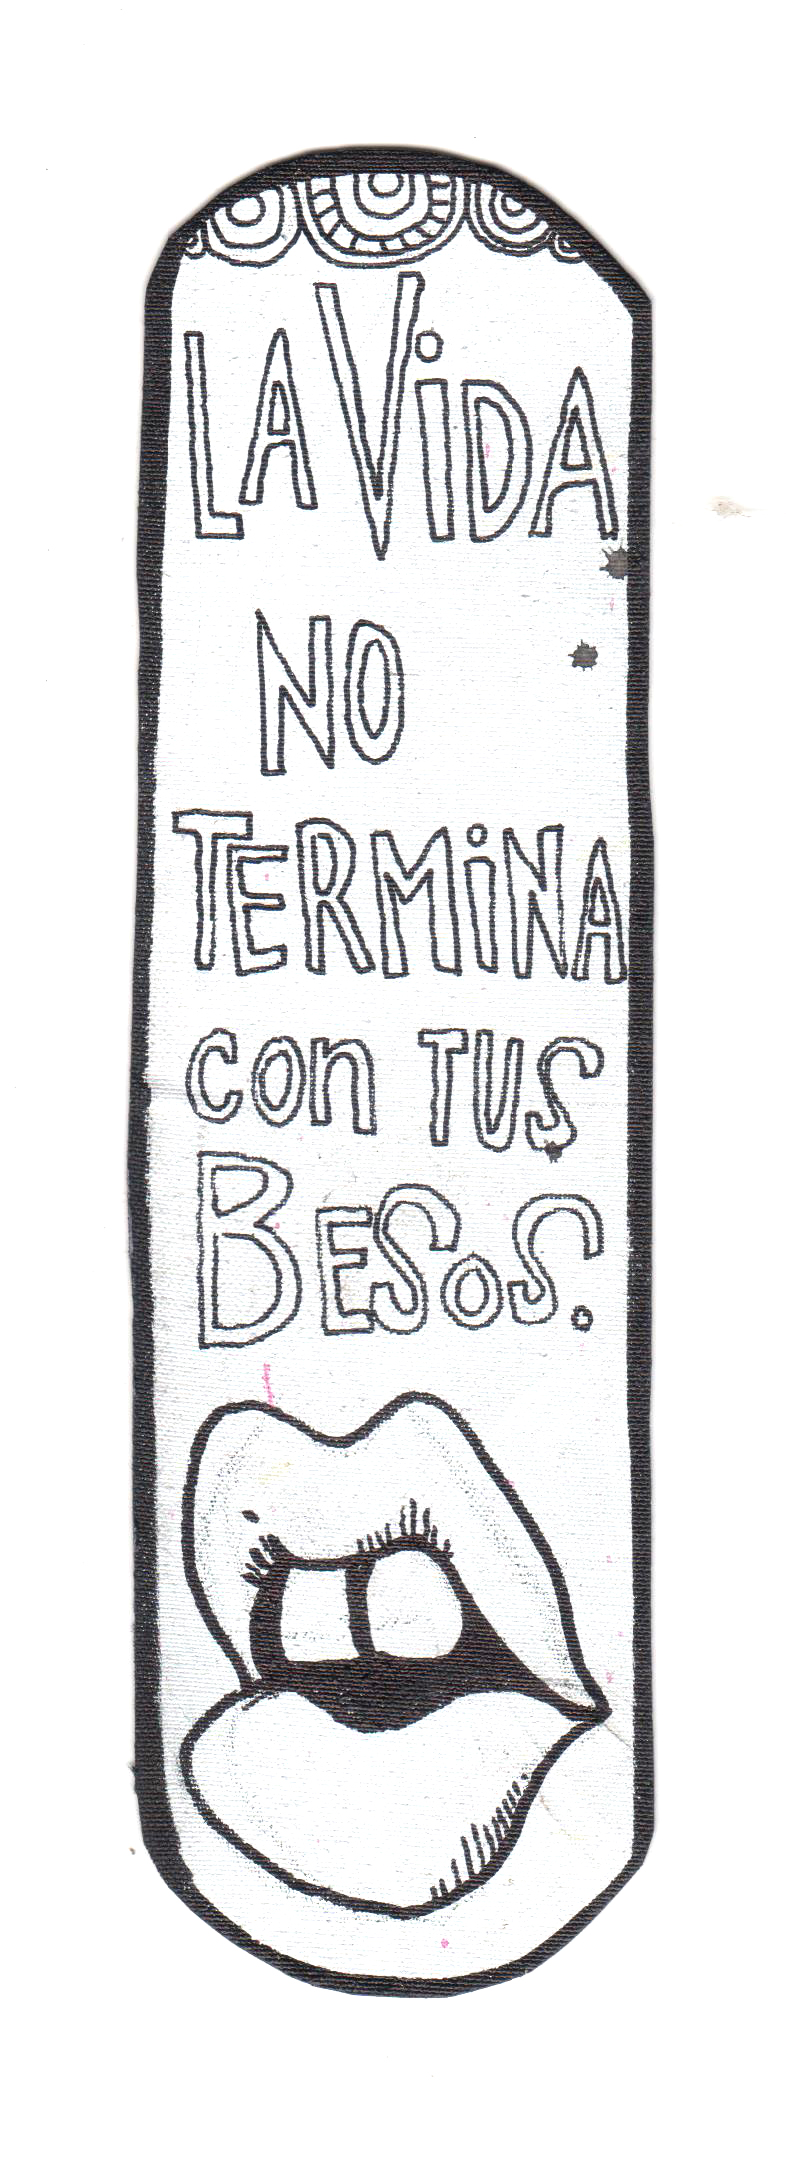 LA ViDA
NO
TERMiNA
con TUS
BESOS.